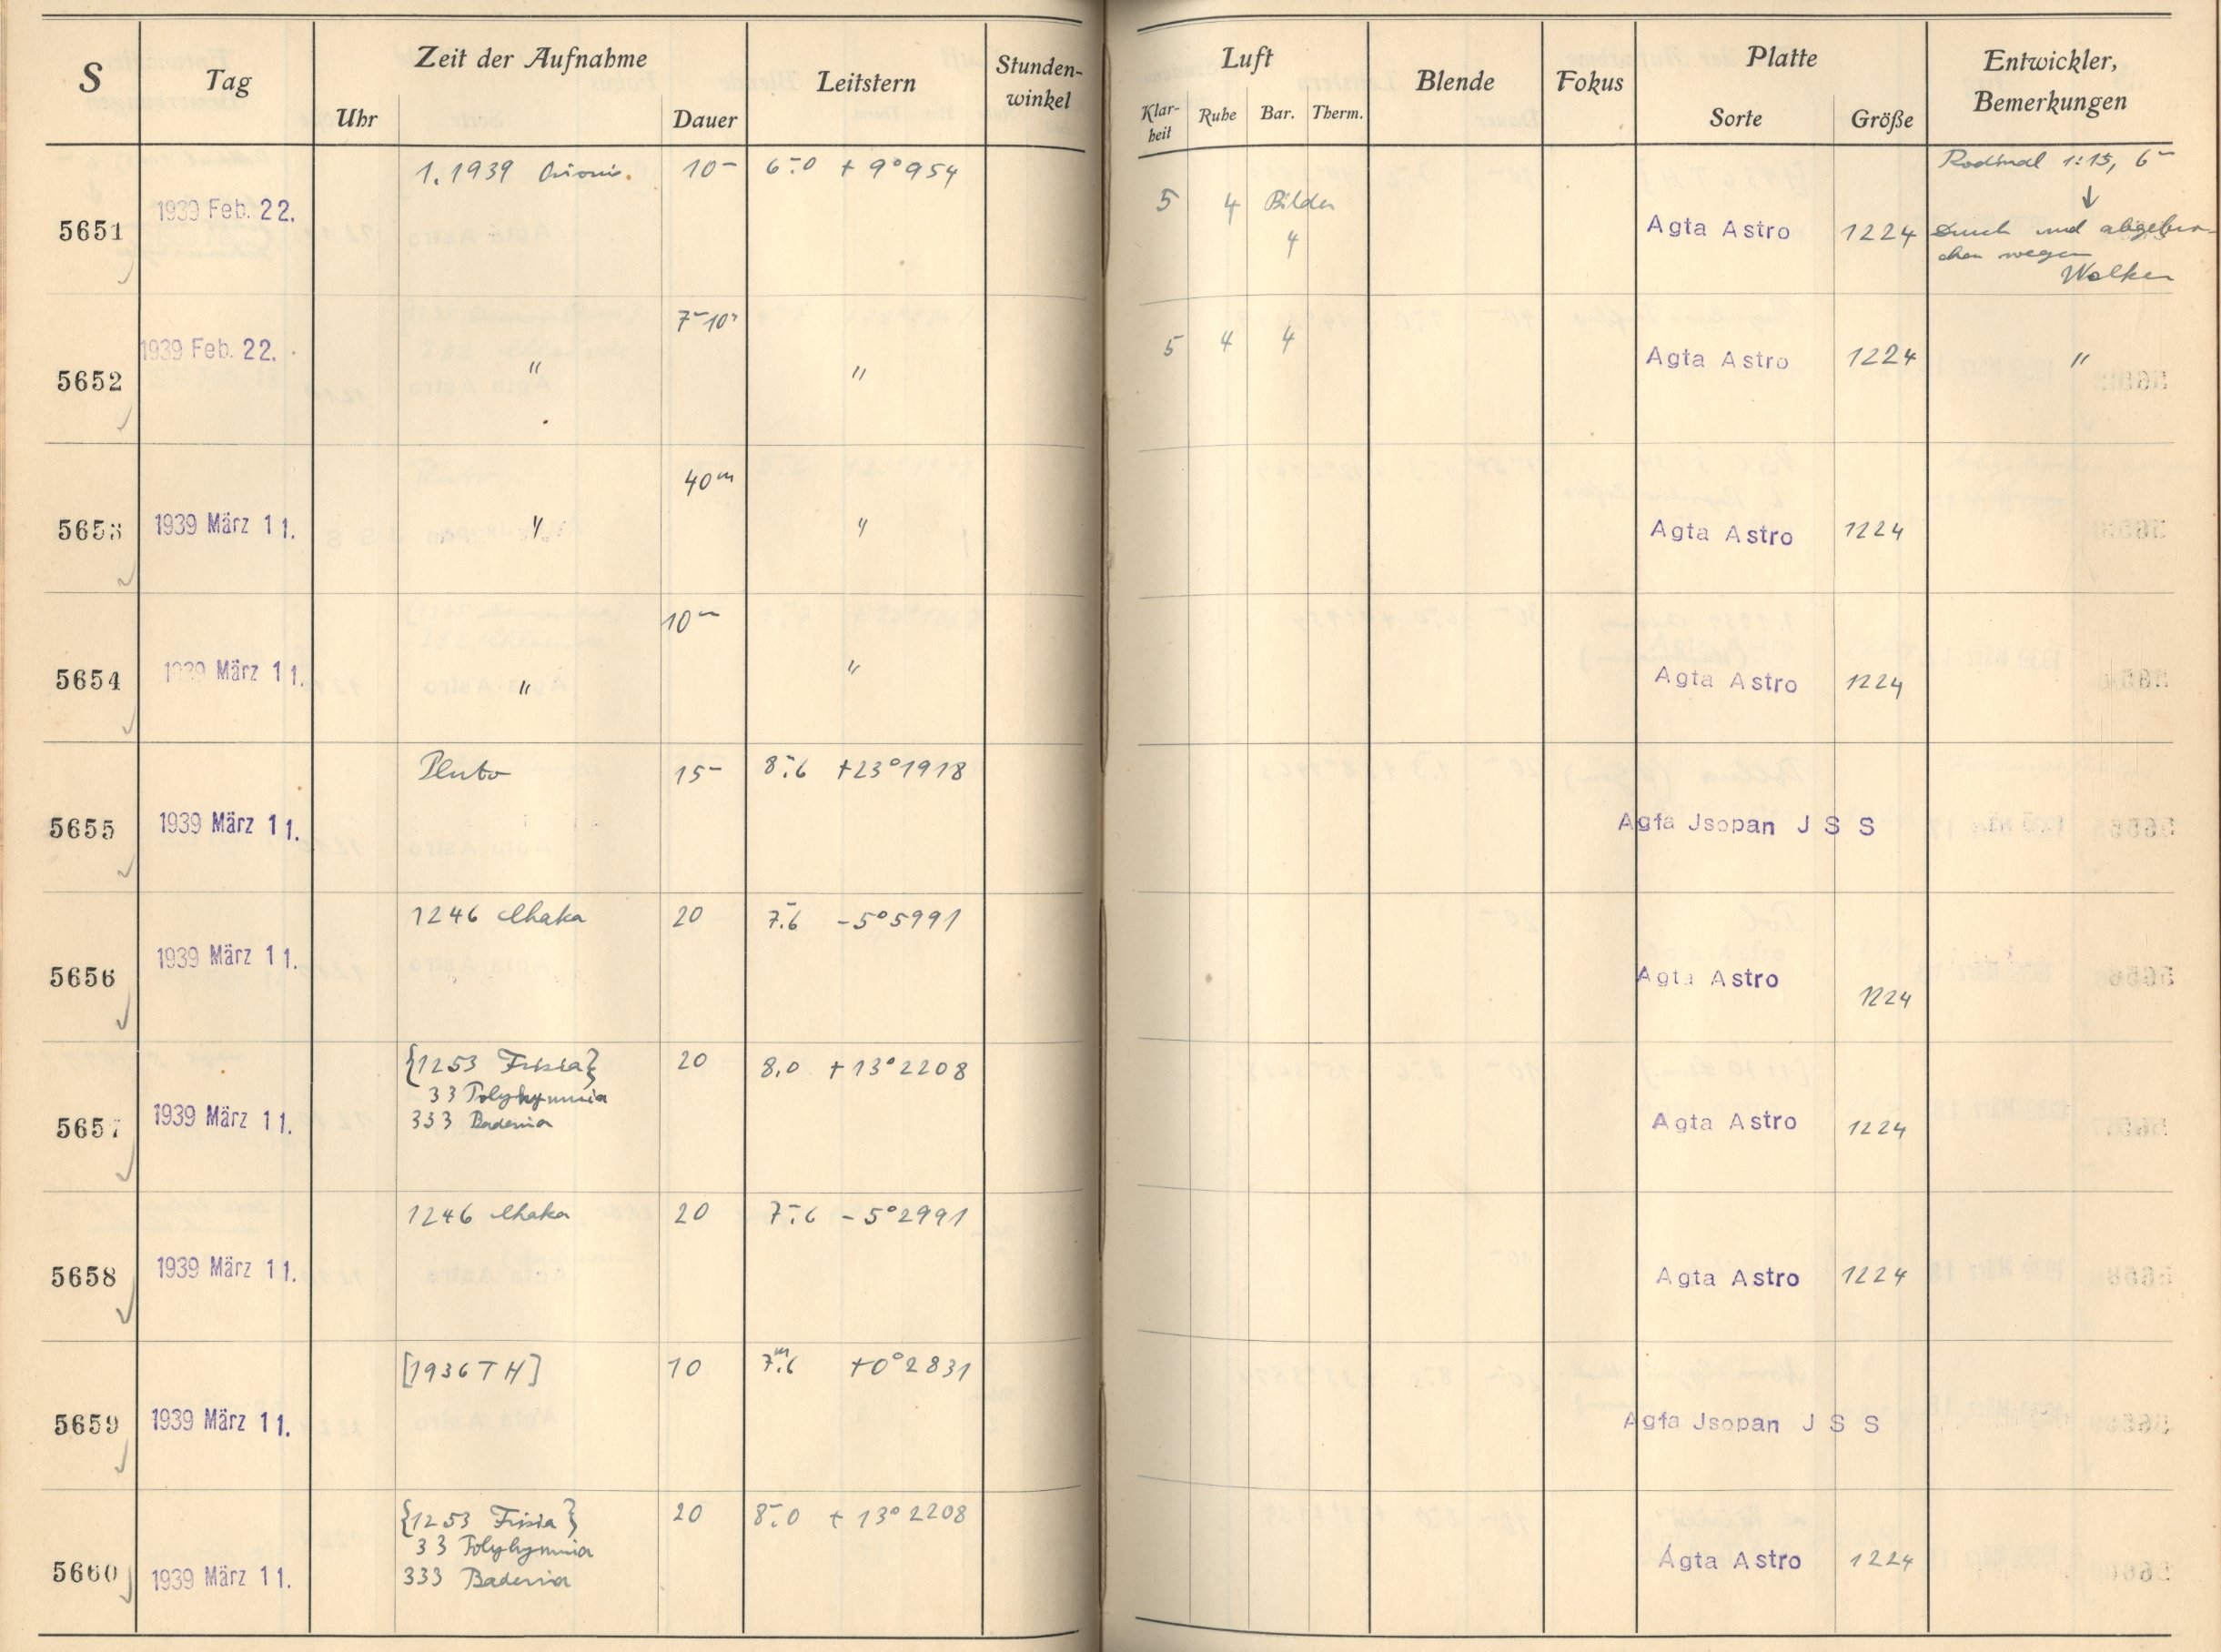 S Tag Zeit der Aufnahme Leitstern Stunden-winkel Luft Blende Fokus Platte Entwickler, Bemerkungen
Uhr Dauer Klar-heit Ruhe Bar. Therm. Sorte Größe
1.1939 Orionis. 10m 6m.0 +9°954 Rodinal 1:15, 6m
5651 1939 Feb. 22. 5 4 Bilder 4 Agfa Astro 1224 ↓
Dunch und abgebro-
chen wegen
Wolken
7m10s
5652 1939 Feb. 22. " " 5 4 4 Agfa Astro 1224 "
40m
5653 1939 März 11. " " Agfa Astro 1224
10m
5654 1939 März 11. " " Agfa Astro 1224
Pluto 15m 8m.6 +23°1918
5655 1939 März 11. Agfa Jsopan J S S
1246 Chaka 20 7m.6 -5°5991
5656 1939 März 11. Agfa Astro 1224
{1253 Frisia} 20 8.0 +13°2208
33 Polyhymnia
333 Badenia
5657 1939 März 11. Agfa Astro 1224
1246 Chaka 20 7m.6 -5°2991
5658 1939 März 11. Agfa Astro 1224
[1936 TH] 10 7m.6 +0°2831
5659 1939 März 11. Agfa Jsopan J S S
{1253 Frisia} 20 8m.0 +13°2208
33 Polyhymnia
333 Badenia
5660 1939 März 11. Agfa Astro 1224